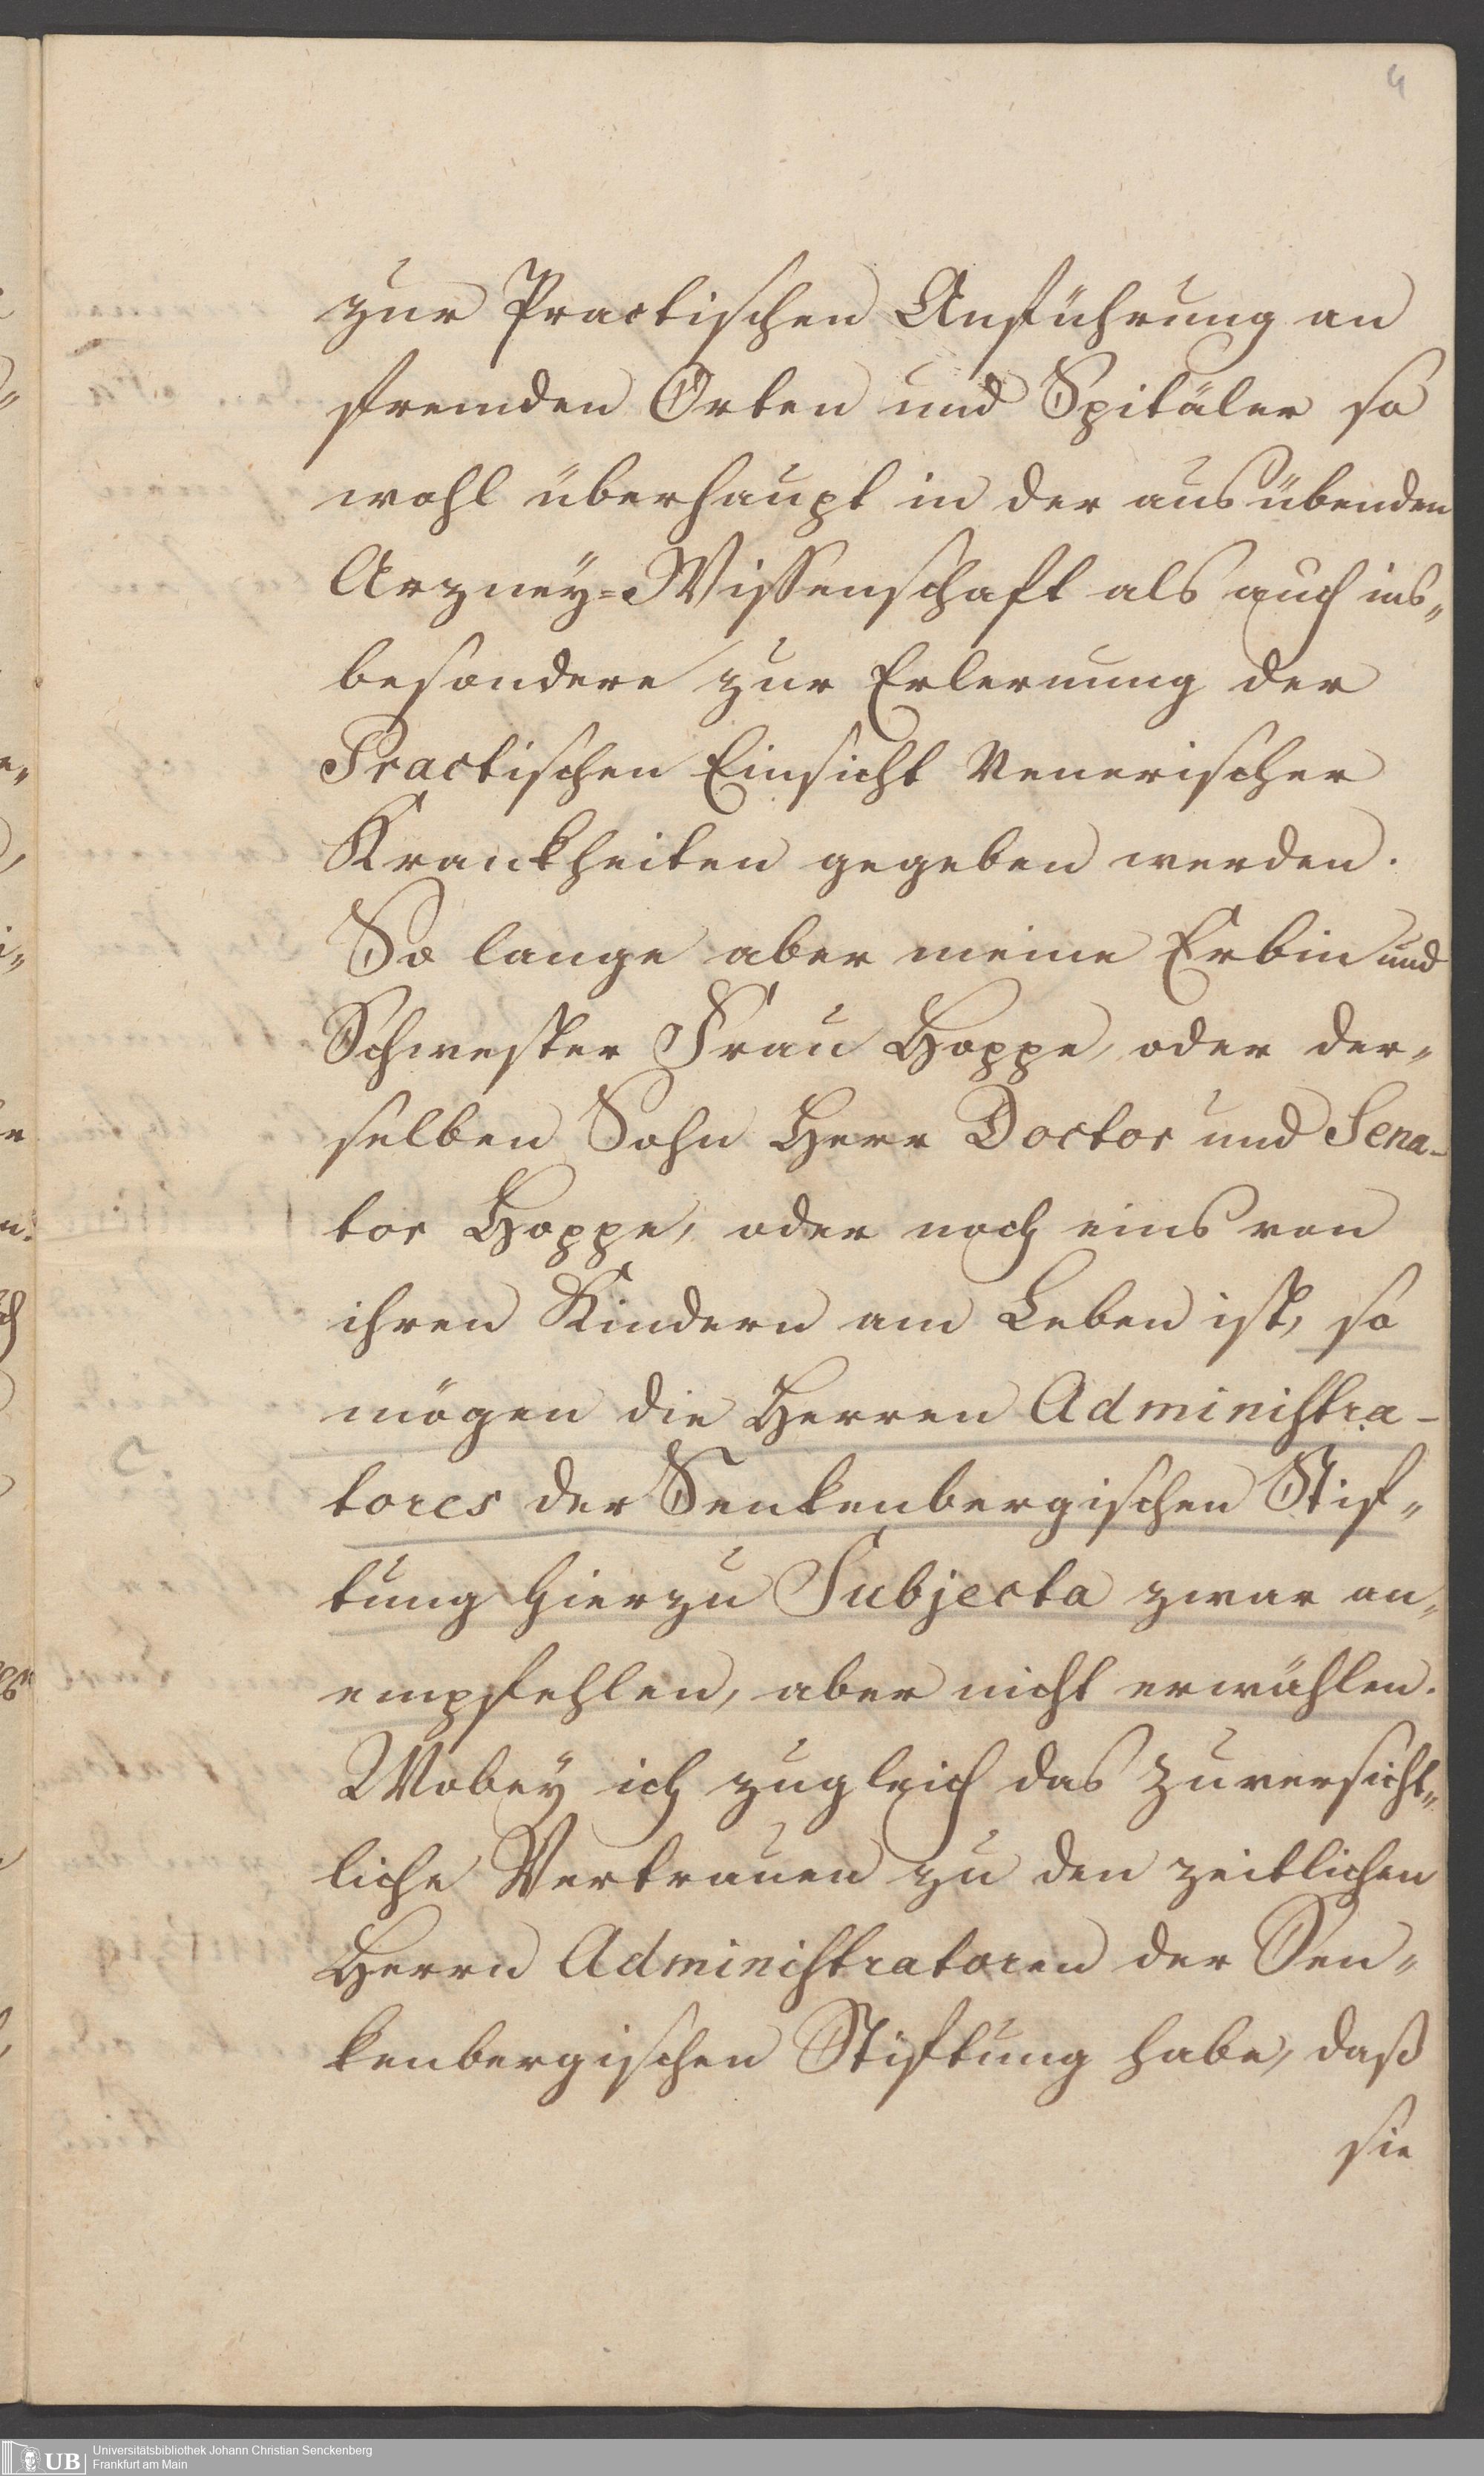 4
zur Practischen Anführung an
fremden Orten und Spitäler so
wohl überhaupt in der ausübenden
Arzney=Wissenschaft als auch ins„
besondere zur Erlernung der
Practischen Einsicht Venerischer
Krankheiten gegeben werden.
So lange aber meine Erbin und
Schwester Frau Hoppe, oder der„
selben Sohn Herr Doctor und Sena-
tor Hoppe, oder noch eins von
ihren Kindern am Leben ist, so
mögen die Herren Administra-
tores der Senkenbergischen Stif„
tung hierzu Subjecta zwar an„
empfehlen, aber nicht erwählen.
Wobey ich zugleich das zuversicht„
liche Vertrauen zu den zeitlichen
Herrn Administratoren der Sen„
kenbergischen Stiftung habe, daß
sie
UB
Universitätsbibliothek Johann Christian Senckenberg
Frankfurt am Main